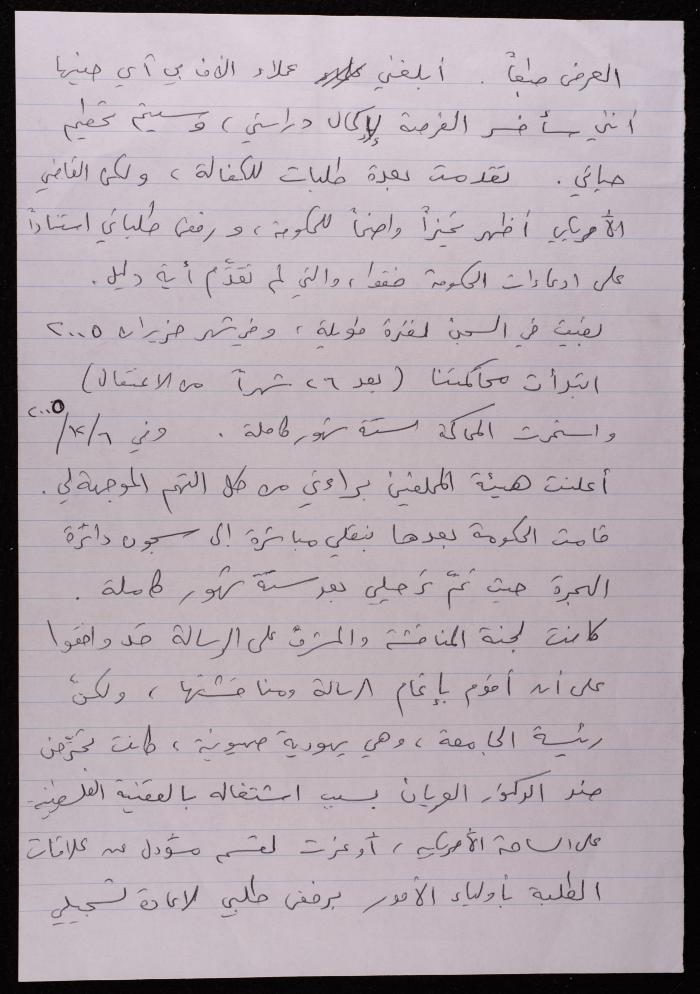 العرض طبعاً. أبلغني عملاء الاف بي آي حينها
أنني سأخسر الفرصة لإكمال دراستي، وسيتم تحطيم
حياتي. تقدمت بعدة طلبات للكفالة، ولكن القاضي
الأمريكي أظهر تحيزاً واضحاً للحكومة، ورفض طلباتي استناداً
على ادعاءات الحكومة فقط، والتي لم تقدّم أية دليل.
بقيت في السجن لفترة طويلة، وفي شهر حزيران ٢٠٠٥
ابتدأت محاكمتنا (بعد ٢٦ شهراً من الاعتقال)
واستمرت المحاكمة لستة شهور كاملة. وفي ٦/١٢/٢٠٠٥
أعلنت هيئة المحلفين براءتي من كل التهم الموجهة لي.
قامت الحكومة بعدها بنقلي مباشرة إلى سجون دائرة
الهجرة حيث تمّ ترحيلي بعد ستّة شهور كاملة.
كانت لجنة المناقشة والمشرف على الرسالة قد وافقوا
على أن أقوم بإتمام الرسالة ومناقشتها، ولكنّ
رئيسة الجامعة، وهي يهودية صهيونية، كانت تحرّض
ضد الدكتور العريان بسبب اشتغاله بالقضية الفلسطينية
على الساحة الأمريكية، أوعزت لقسم مسؤول عن علاقات
الطلبة بأولياء الأمور برفض طلبي لإعادة تسجيلي